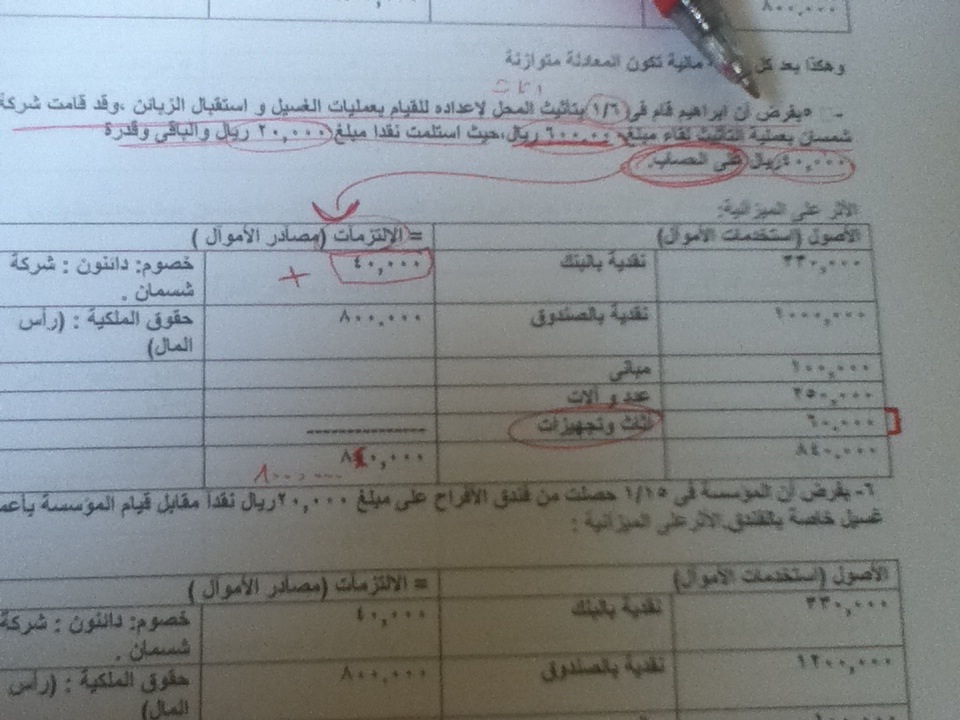 ٨٠٠,٠٠٠
وهكذا بعد كل مالية تكون المعادلة متوازنة
اثاث
٥- بفرض أن ابراهيم قام فى ١/٦ بتأثيث المحل لاعداده للقيام بعمليات الغسيل و استقبال الزبائن ،وقد قامت شركة
شمسان بعملية التأثيث لقاء مبلغ ٦٠٠,٠٠ ريال،حيث استلمت نقدا مبلغ ٢٠,٠٠٠ ريال والباقى وقدرة
٤٠,٠٠٠ريال على الحساب.
الأثر على الميزانية:
الأصول (استخدمات الأموال) = الالتزمات (مصادر الأموال )
٣٣٠,٠٠٠ نقدية بالبنك ٤٠,٠٠٠ + خصوم: دائنون : شركة
شسمان .
١٠٠,٠٠٠ نقدية بالصندوق ٨٠٠,٠٠٠ حقوق الملكية : (رأس
المال)
١٠٠,٠٠٠ مبانى
٢٥٠,٠٠٠ عدد و آلات
٦٠,٠٠٠ أثاث وتجهيزات ---------------
٨٤٠,٠٠٠ ٨٤٠,٠٠٠
٨٠٠,٠٠٠
٦- بفرض أن المؤسسة فى ١/١٥ حصلت من فندق الأفراح على مبلغ ٢٠,٠٠٠ريال نقدا مقابل قيام المؤسسة بأعم
غسيل خاصة بالفندق.الأثرعلى الميزانية :
الأصول (استخدمات الأموال) = الالتزمات (مصادر الأموال )
٣٣٠,٠٠٠ نقدية بالبنك ٤٠,٠٠٠ خصوم: دائنون : شركة
شسمان .
١٢٠٠,٠٠٠ نقدية بالصندوق ٨٠٠,٠٠٠ حقوق الملكية : (رأس
المال)